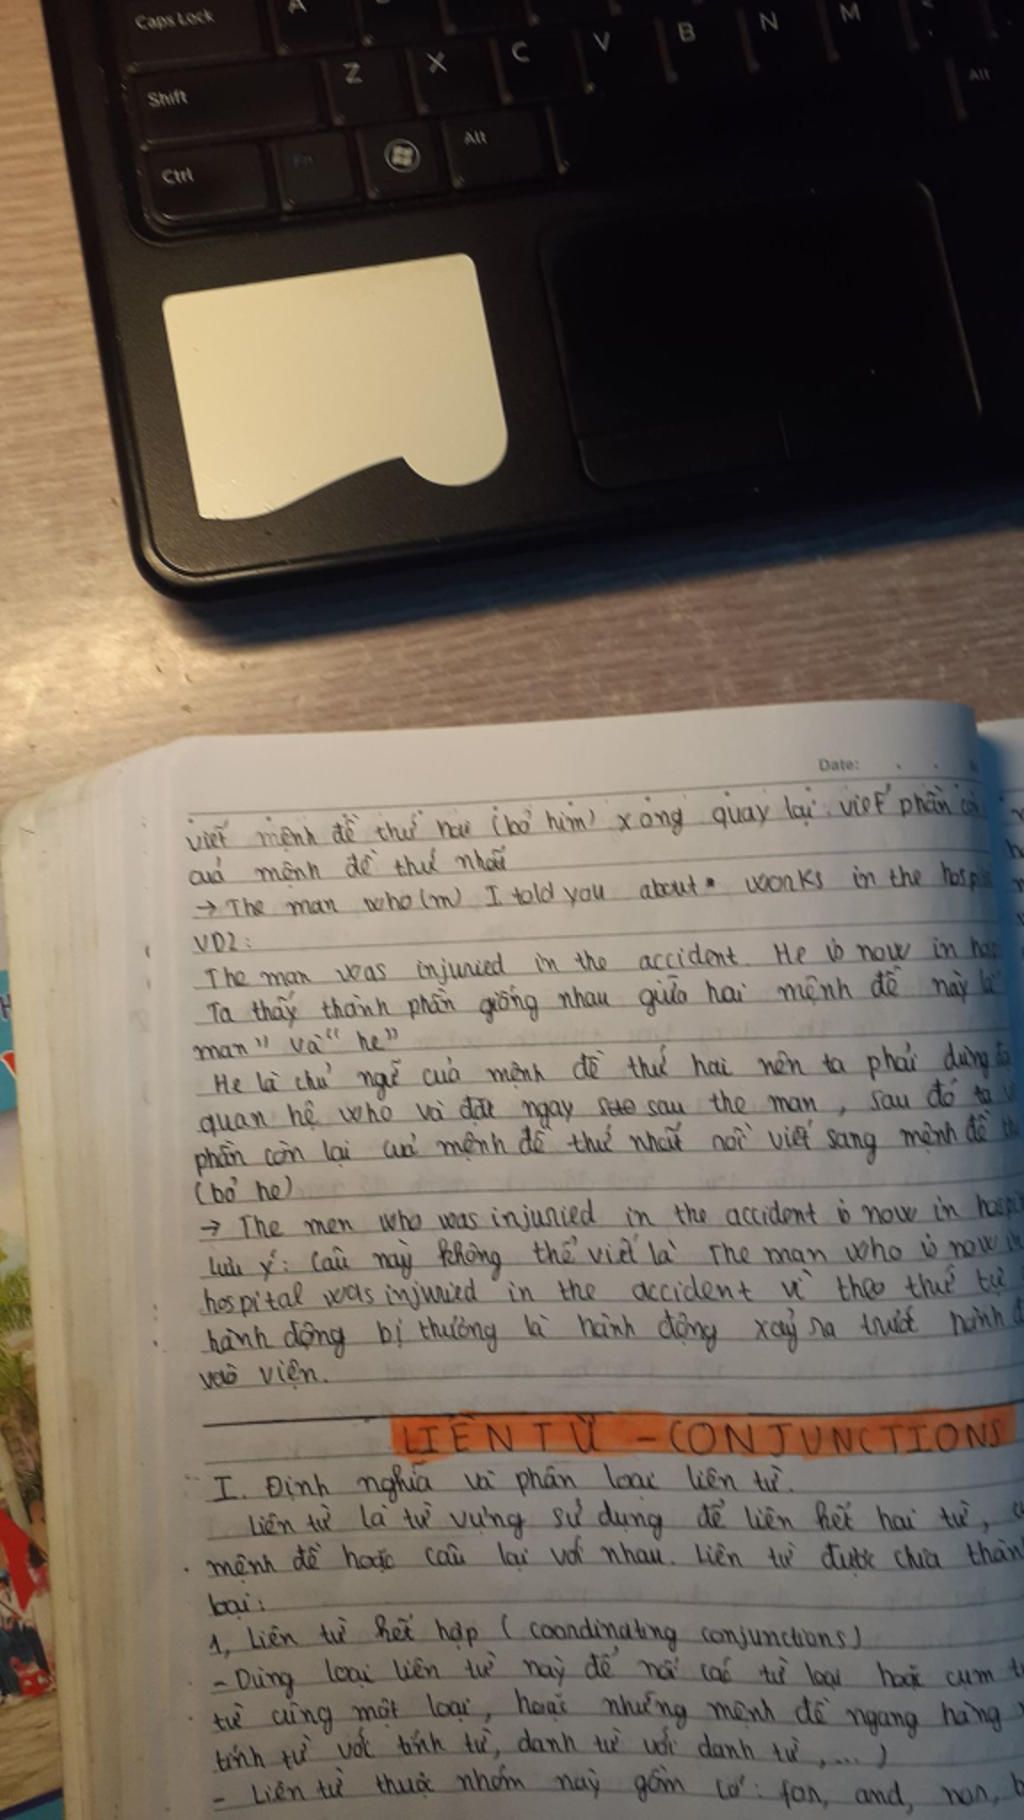 Caps Lock A
Shift Z X C V B N M Alt
Ctrl Fn Alt
Date:
viết mệnh đề thứ hai (bỏ him) xong quay lại viết phần còn
cuả mệnh đề thứ nhất
→ The man who(m) I told you about works in the
VD2:
The man was injuried in the accident. He is now in
Ta thấy thành phần giống nhau giữa hai mệnh đề này là
man" và "he"
He là chủ ngữ cuả mệnh đề thứ hai nên ta phải dùng
quan hệ who và đặt ngay sau the man, sau đó ta
phần còn lại cuả mệnh đề thứ nhất rồi viết sang mệnh đề
(bỏ he)
→ The men who was injuried in the accident is now in
Lưu ý: Câu này không thể viết là The man who is now in
hospital was injuried in the accident vì theo thứ tự
hành động bị thương là hành động xảy ra trước hành
vào viện.
LIÊN TỪ - CONJUNCTIONS
I. Định nghĩa và phân loại liên từ.
Liên từ là từ vựng sử dụng để liên kết hai từ,
mệnh đề hoặc câu lại với nhau. Liên từ được chia thành
loại:
1, Liên từ kết hợp (coordinating conjunctions)
- Dùng loại liên từ này để nối các từ loại hoặc cụm
từ cùng một loại, hoặc những mệnh đề ngang hàng
tính từ với tính từ, danh từ với danh từ, ...)
- Liên từ thuộc nhóm này gồm có: for, and, nor,